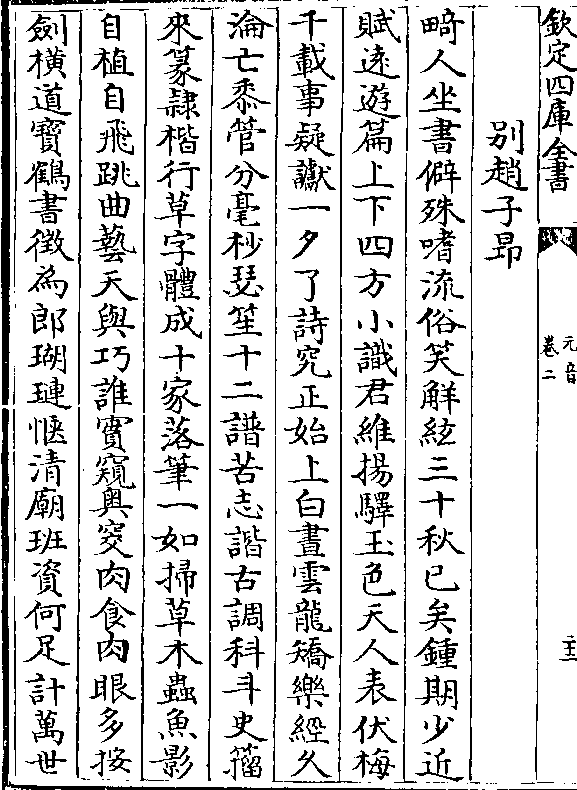 欽定四庫全書
元音
卷二
十三
別趙子昂
畸人坐書僻殊嗜流俗笑解絃三十秋已矣鍾期少近
賦遠遊篇上下四方小識君維揚驛玉色天人表伏梅
千載事疑讞一夕了詩究正始上白晝雲龍矯樂經久
淪亡黍管分毫杪瑟笙十二譜苦志諧古調科斗史籀
來篆隸楷行草字體成十家落筆一如掃草木蟲魚影
自植自飛跳曲藝天與巧誰實窺奥窔肉食肉眼多按
劍橫道寳鶴書徵為郎瑚璉愜清廟班資何足計萬世